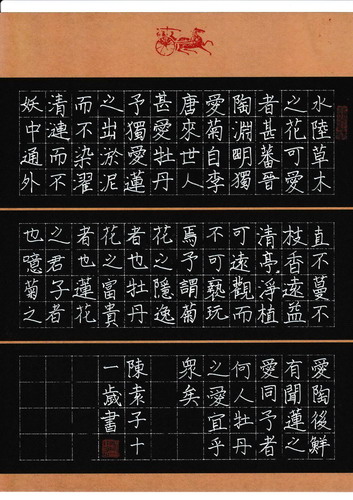 水陸草木
之花可愛
者甚蕃晉
陶淵明獨
愛菊自李
唐來世人
甚愛牡丹
予獨愛蓮
之出淤泥
而不染濯
清漣而不
妖中通外
直不蔓不
枝香遠益
清亭々淨植
可遠觀而
不可褻玩
焉予謂菊
花之隱逸
者也牡丹
花之富貴
者也蓮花
之君子者
也噫菊之
愛陶後鮮
有聞蓮之
愛同予者
何人牡丹
之愛宜乎
眾矣
陳素子十
一歲書